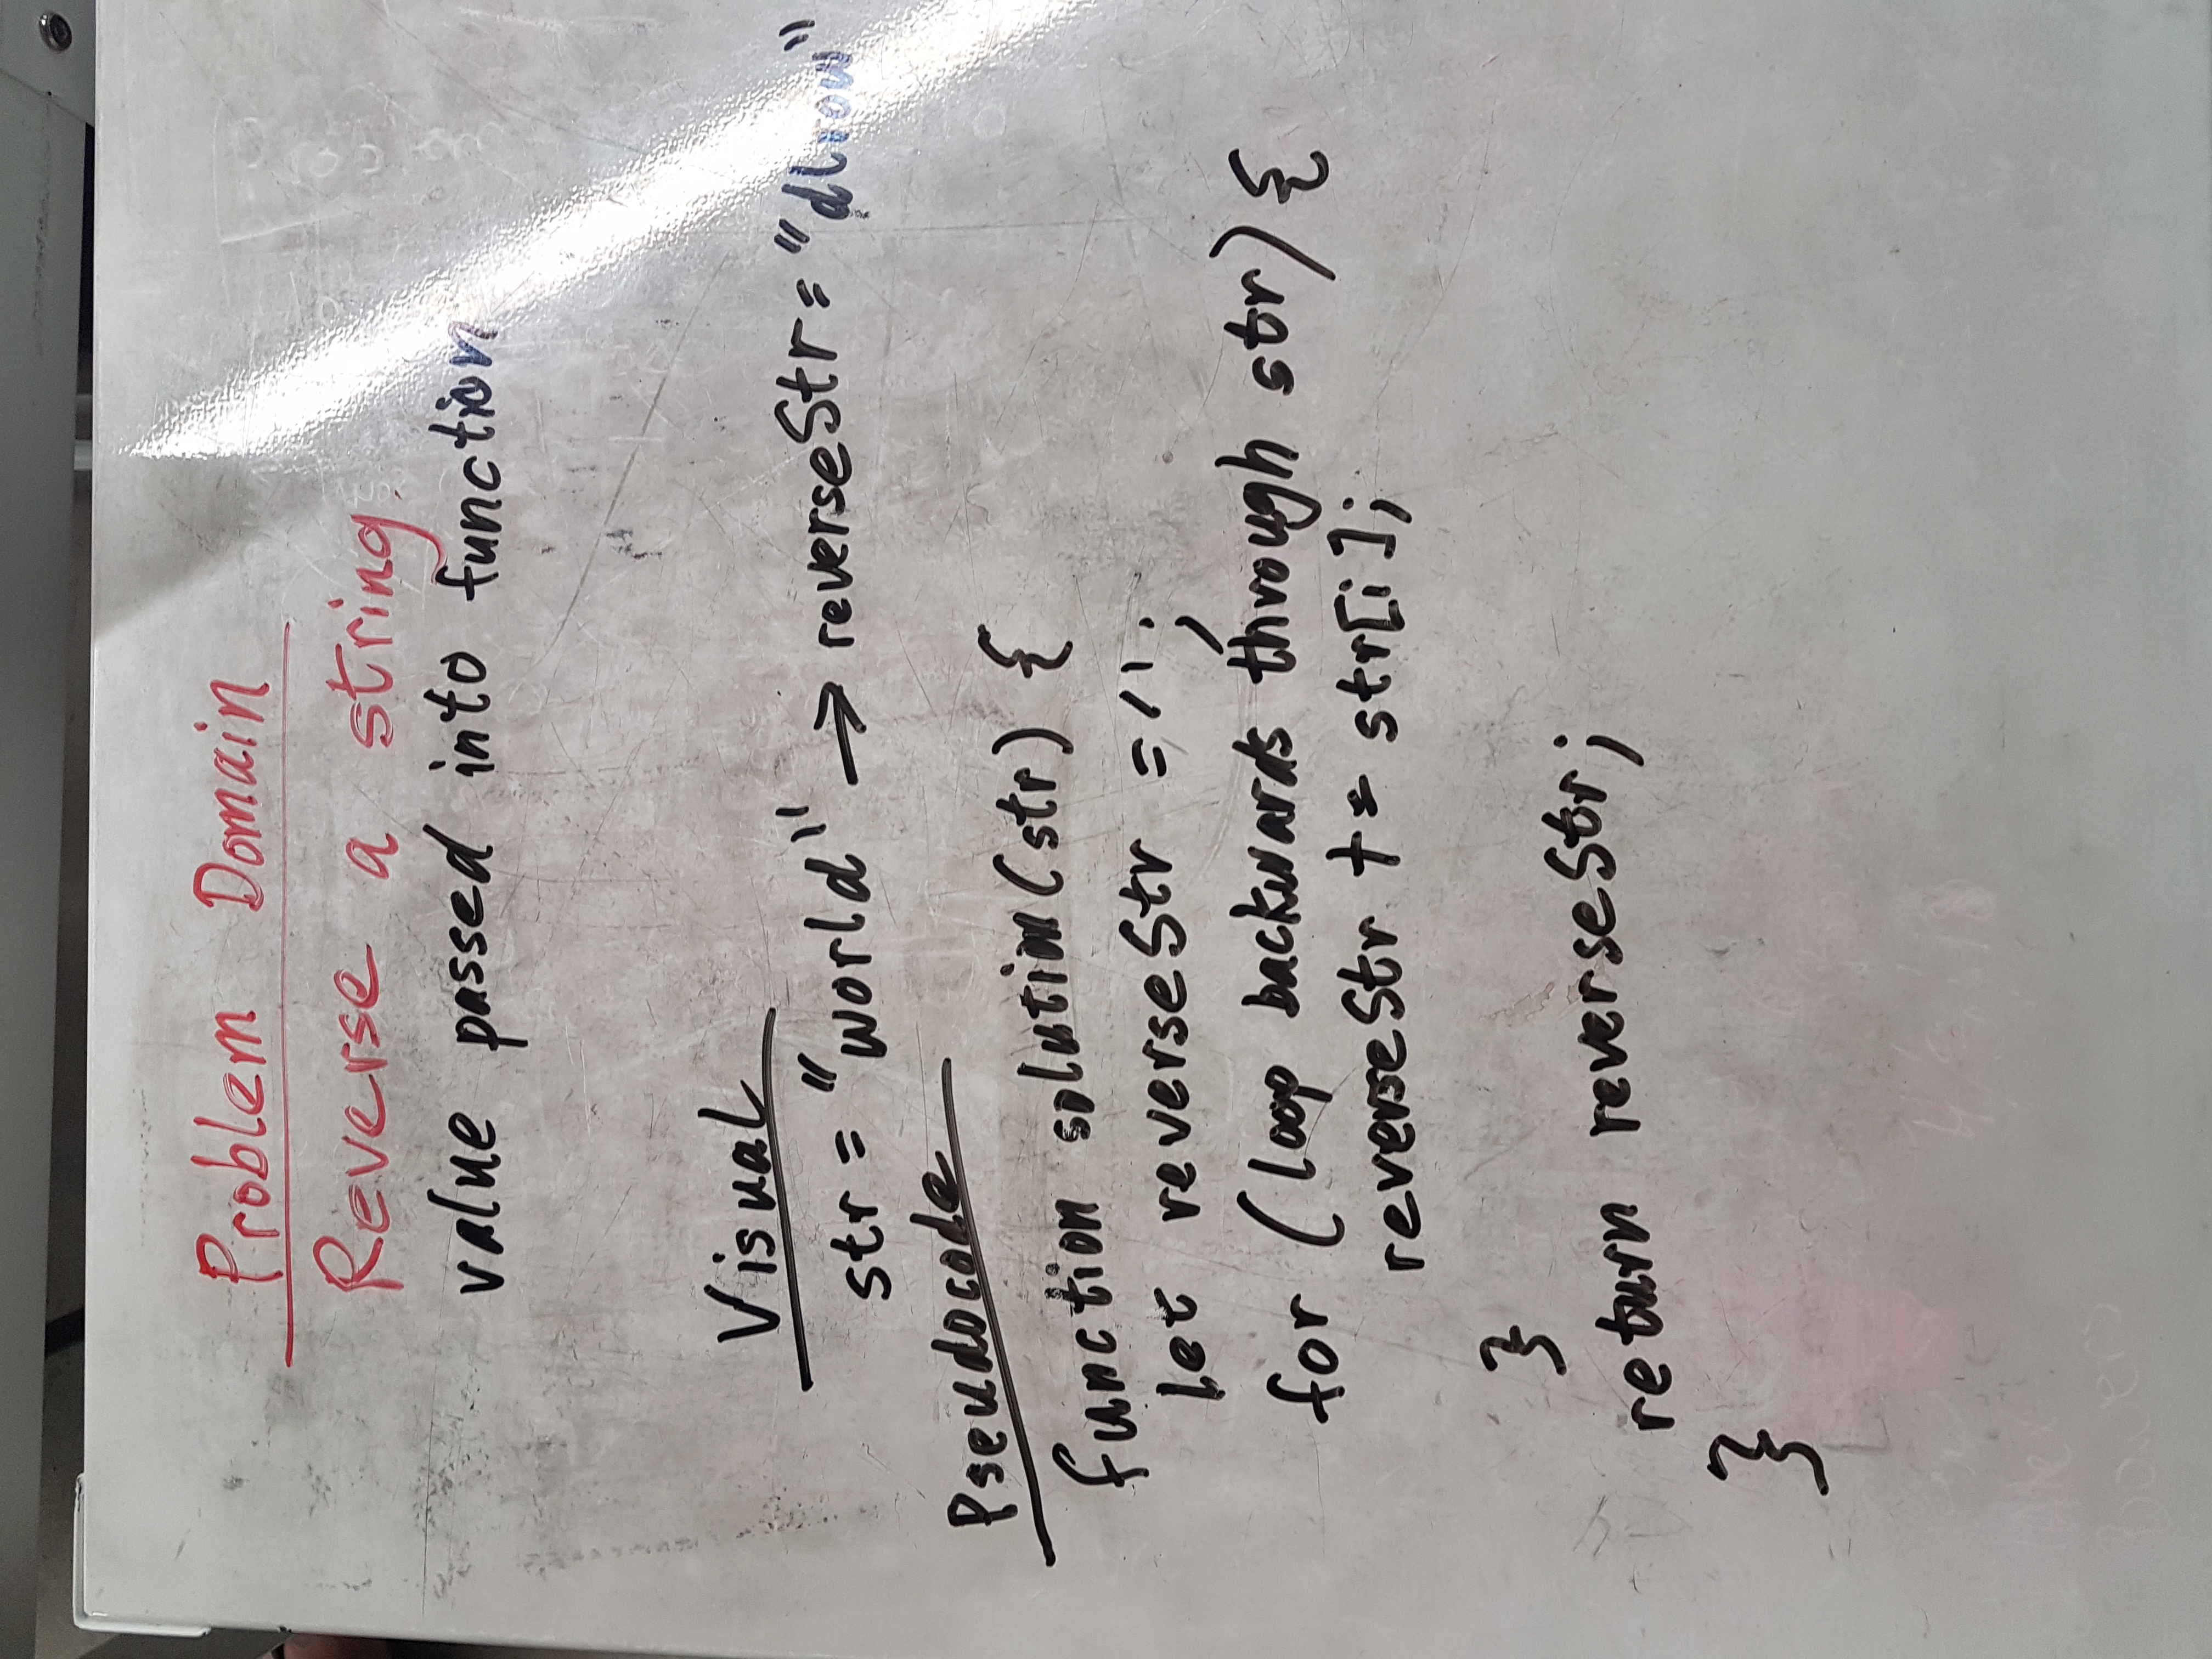 Problem Domain
Reverse a string.
value passed into function
Visual
str = "world" → reverseStr = "dlrow"
Pseudocode
function solution(str) {
let reverseStr = '';
for (loop backwards through str) {
reverseStr += str[i];
}
return reverseStr;
}
Powers